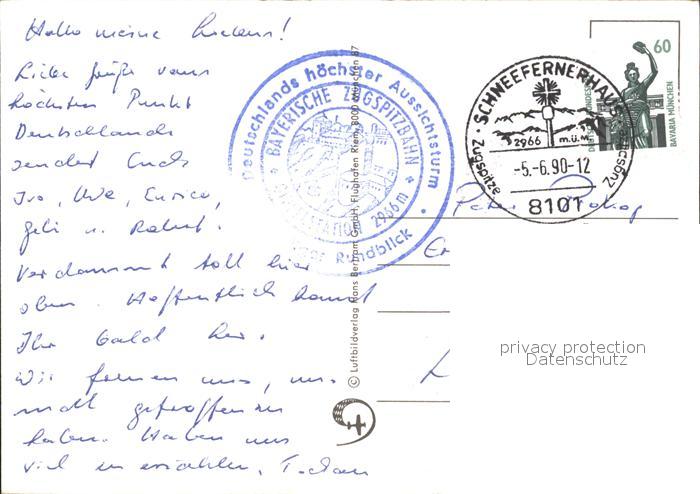 Hallo meine Lieben!
Liebe Grüße vom
höchsten Punkt
Deutschlands
sendet Euch
Ivo, Uwe, Enrico,
Gabi u. Robert.
Verdammt toll hier
oben. Hoffentlich kommt
Ihr bald her.
Wir freuen uns, uns
mal getroffen zu
haben. Haben uns
viel zu erzählen.
Deutschlands höchster Aussichtsturm
BAYERISCHE ZUGSPITZBAHN
STATION 2966 m
Rundblick
© Luftbildverlag Hans Bertram GmbH, Flughafen Riem, 8000 München 87
SCHNEEFERNERHAUS
2966 m.ü.M.
Zugspitze Zugspitze
-5.-6.90-12
8101
60
BAVARIA MÜNCHEN
Peter
privacy protection
Datenschutz